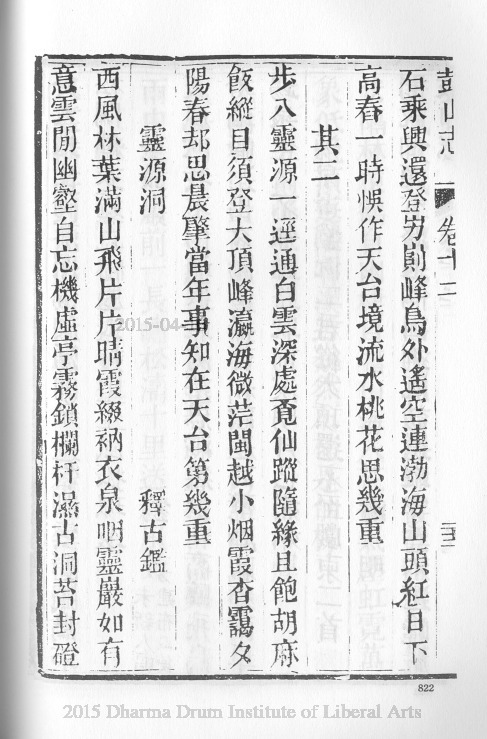 鼓山志 卷十二
石乘興還登屴崱峰鳥外遙空連渤海山頭紅日下
高春一時悞作天台境流水桃花思幾重
其二
步入靈源一逕通白雲深處覔仙蹤隨緣且飽胡麻
飯縱目須登大頂峰瀛海微茫閩越小烟霞杳靄夕
陽春却思晨肇當年事知在天台第幾重
靈源洞 釋古鑑
西風林葉滿山飛片片晴霞綴衲衣泉咽靈巖如有
意雲閒幽壑自忘機虛亭霧鎖欄杆濕古洞苔封磴
822
2015-04
2015 Dharma Drum Institute of Liberal Arts